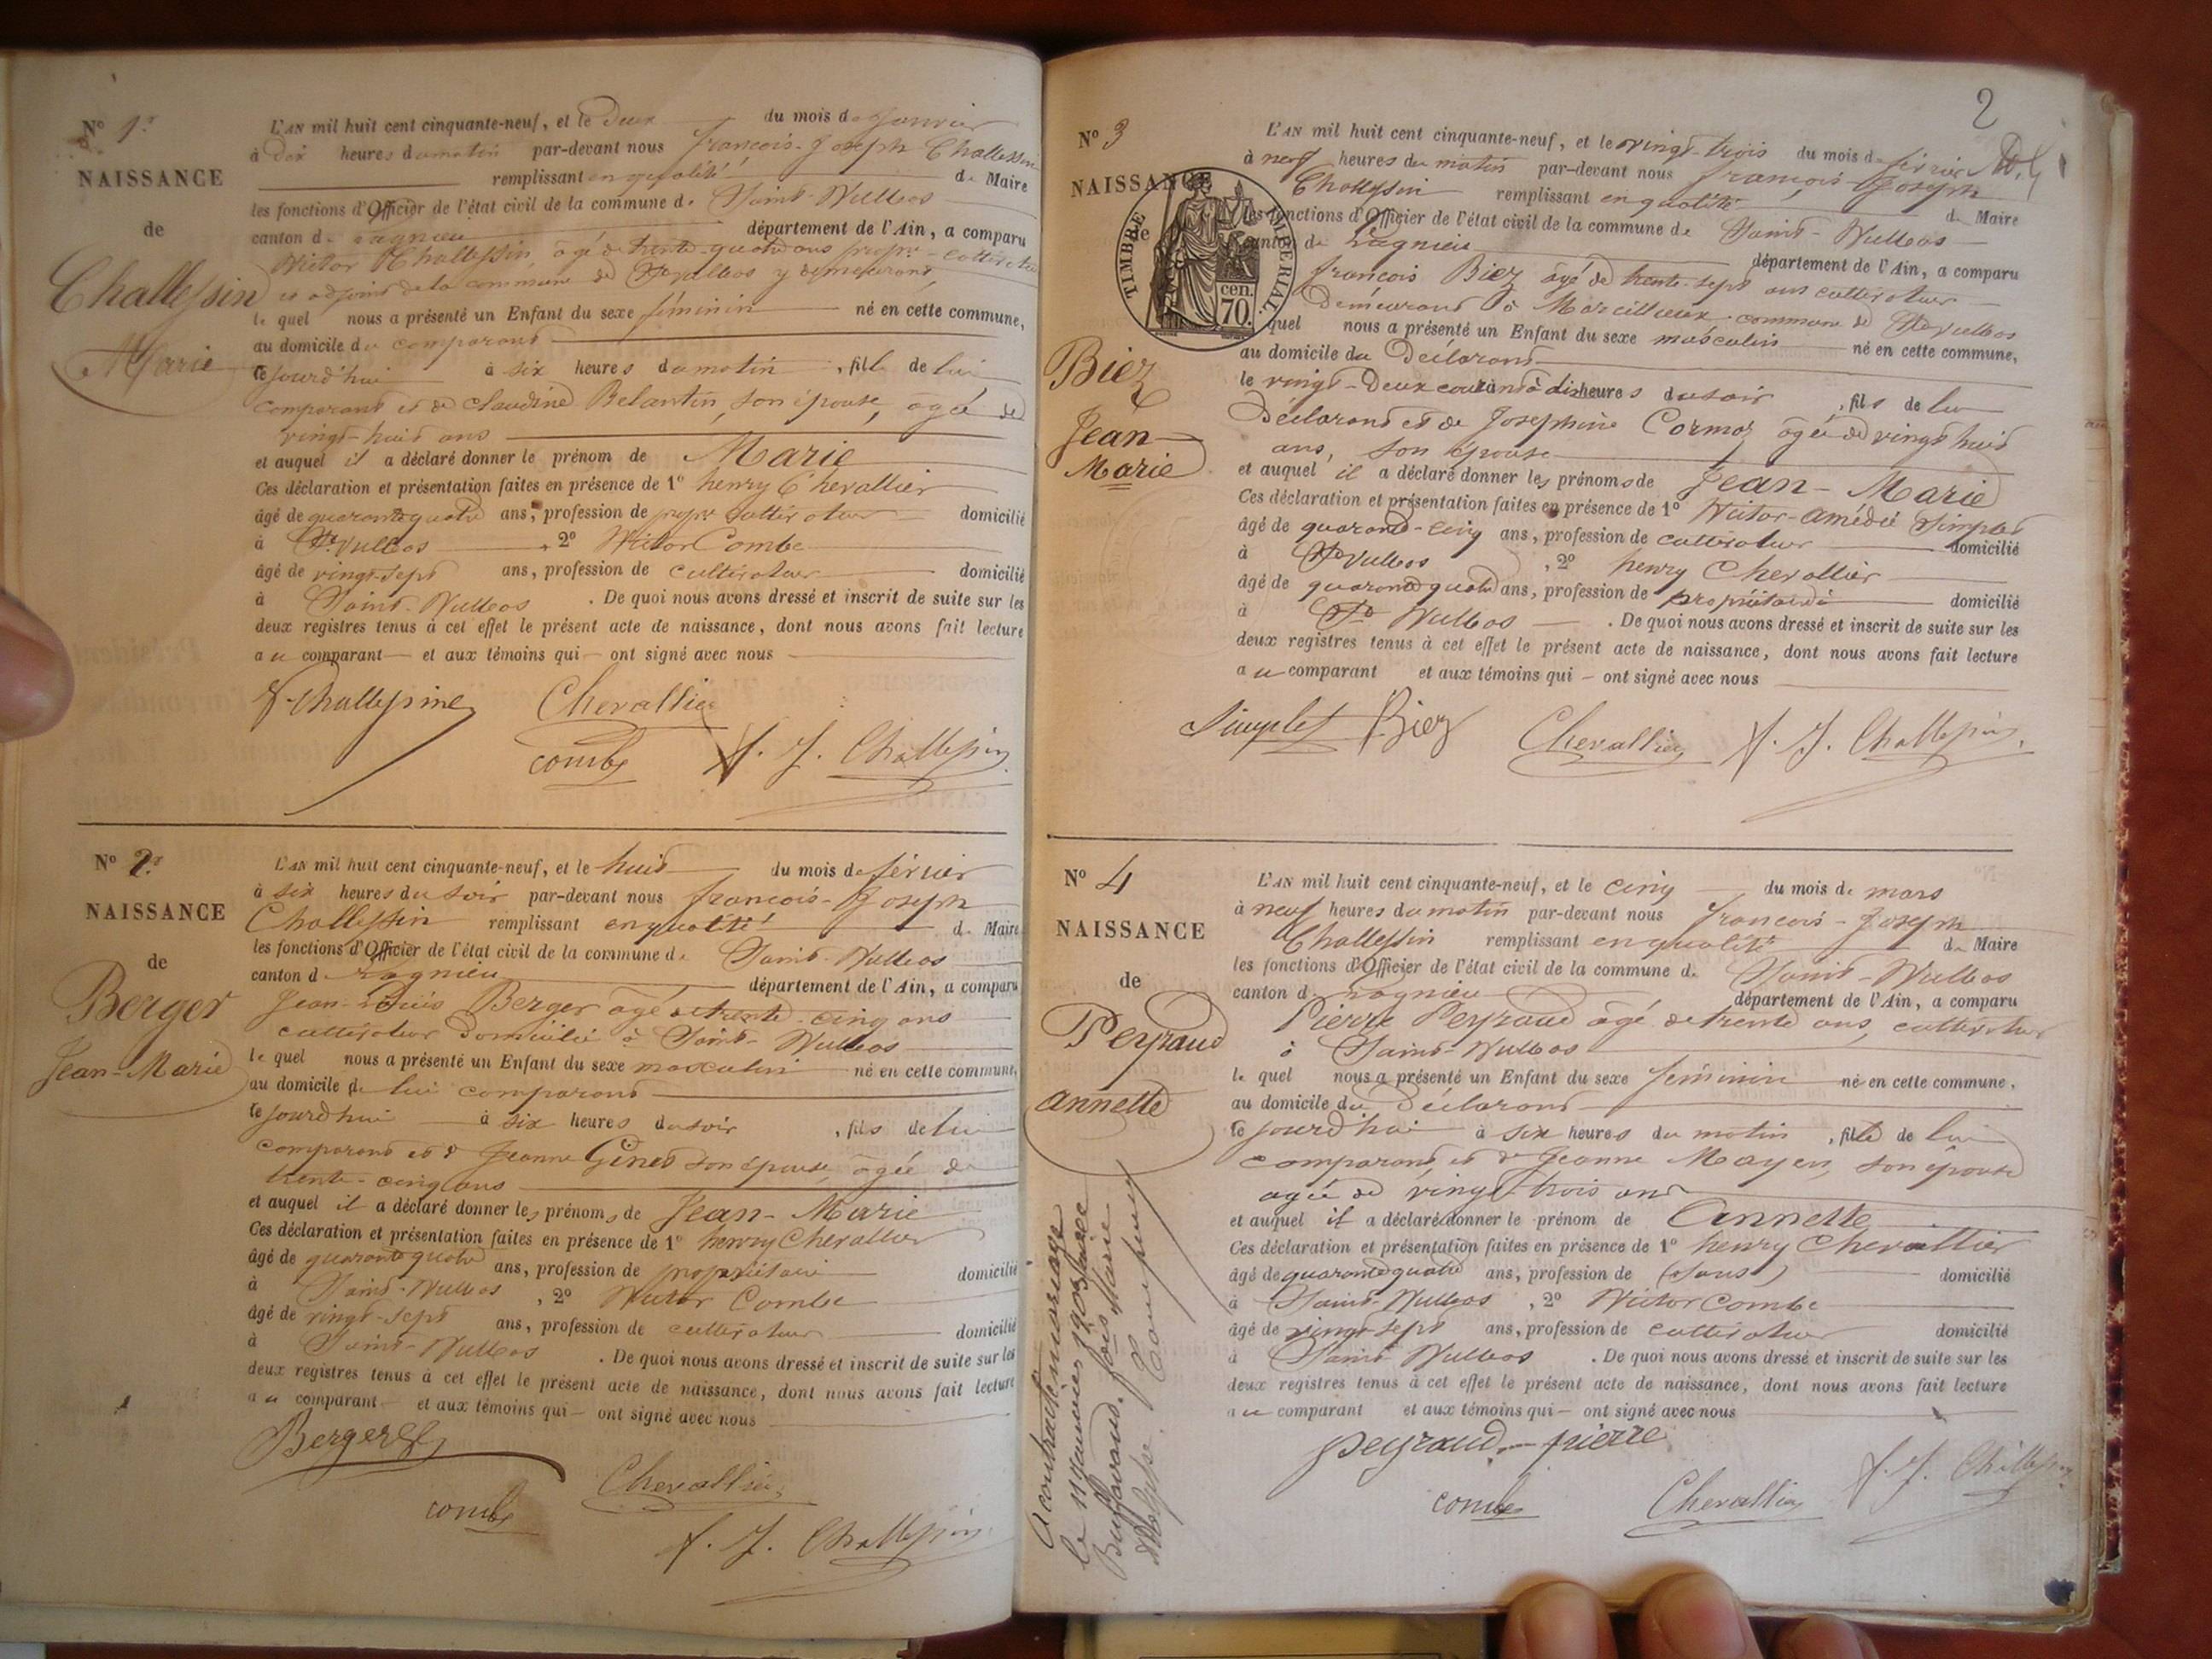 N° 1er
NAISSANCE
de
Challessin
Marie
L'AN mil huit cent cinquante-neuf, et le deux du mois de janvier
à dix heures du matin par-devant nous francois-Joseph Challessin
remplissant en qualité de Maire
les fonctions d'Officier de l'état civil de la commune de Saint-Vulbas
canton de Lagnieu département de l'Ain, a comparu
Victor Challessin, agé de trente-quatre ans propre-cultivateur
et adjoint de la commune de St Vulbas y demeurant
le quel nous a présenté un Enfant du sexe féminin né en cette commune,
au domicile du comparant
ce jourd'hui à six heures du matin, fille de lui
comparant et de claudine Belantin, son épouse, agée de
vingt-huit ans
et auquel il a déclaré donner le prénom de Marie
Ces déclaration et présentation faites en présence de 1° henry Chevallier
âgé de quarante quatre ans, profession de propre cultivateur domicilié
à St Vulbas, 2° Victor Combe
âgé de vingt-sept ans, profession de cultivateur domicilié
à Saint-Vulbas. De quoi nous avons dressé et inscrit de suite sur les
deux registres tenus à cet effet le présent acte de naissance, dont nous avons fait lecture
au comparant et aux témoins qui ont signé avec nous
V. Challessine Chevallier
combe f. J. Challessin
N° 2e
NAISSANCE
de
Berger
Jean-Marie
L'AN mil huit cent cinquante-neuf, et le huit du mois de février
à six heures du soir par-devant nous francois-Joseph
Challessin remplissant en qualité de Maire
les fonctions d'Officier de l'état civil de la commune de Saint-Vulbas
canton de Lagnieu département de l'Ain, a comparu
Jean-Louis Berger agé de trente-cinq ans
cultivateur domicilié à Saint-Vulbas
le quel nous a présenté un Enfant du sexe masculin né en cette commune,
au domicile de lui comparant
ce jourd'hui à six heures du soir, fils de lui
comparant et de Jeanne Ginet son épouse, agée de
trente-cinq ans
et auquel il a déclaré donner les prénoms de Jean-Marie
Ces déclaration et présentation faites en présence de 1° henry Chevallier
âgé de quarante quatre ans, profession de propriétaire domicilié
à Saint-Vulbas, 2° Victor Combe
âgé de vingt-sept ans, profession de cultivateur domicilié
à Saint-Vulbas. De quoi nous avons dressé et inscrit de suite sur les
deux registres tenus à cet effet le présent acte de naissance, dont nous avons fait lecture
au comparant et aux témoins qui ont signé avec nous
Berger
Chevallier
combe
f. J. Challessin
2
N° 3
NAISSANCE
de
TIMBRE IMPÉRIAL
70 cen.
Biez
Jean
Marie
L'AN mil huit cent cinquante-neuf, et le vingt-trois du mois de février
à neuf heures du matin par-devant nous francois-Joseph
Challessin remplissant en qualité de Maire
les fonctions d'Officier de l'état civil de la commune de Saint-Vulbas
canton de Lagnieu département de l'Ain, a comparu
francois Biez âgé de trente-sept ans cultivateur
demeurant à Marcillieux commune de St Vulbas
le quel nous a présenté un Enfant du sexe masculin né en cette commune,
au domicile du déclarant
le vingt-deux courant à dix heures du soir, fils de lui
déclarant et de Josephine Cormoz agée de vingt huit
ans, son épouse
et auquel il a déclaré donner les prénoms de Jean-Marie
Ces déclaration et présentation faites en présence de 1° Victor-amédée Simplet
âgé de quarante-cinq ans, profession de cultivateur domicilié
à St Vulbas, 2° henry Chevallier
âgé de quarante quatre ans, profession de propriétaire domicilié
à St Vulbas. De quoi nous avons dressé et inscrit de suite sur les
deux registres tenus à cet effet le présent acte de naissance, dont nous avons fait lecture
au comparant et aux témoins qui ont signé avec nous
Simplet Biez Chevallier f. J. Challessin
N° 4
NAISSANCE
de
Peyraud
annette
L'AN mil huit cent cinquante-neuf, et le cinq du mois de mars
à neuf heures du matin par-devant nous francois-Joseph
Challessin remplissant en qualité de Maire
les fonctions d'Officier de l'état civil de la commune de Saint-Vulbas
canton de Lagnieu département de l'Ain, a comparu
Pierre Peyraud agé de trente ans, cultivateur
à Saint-Vulbas
le quel nous a présenté un Enfant du sexe féminin né en cette commune,
au domicile du déclarant
ce jourd'hui à six heures du matin, fille de lui
comparant et de Jeanne Mayen, son épouse
agée de vingt-trois ans
et auquel il a déclaré donner le prénom de Annette
Ces déclaration et présentation faites en présence de 1° henry Chevallier
âgé de quarante quatre ans, profession de (sans) domicilié
à Saint-Vulbas, 2° Victor Combe
âgé de vingt-sept ans, profession de cultivateur domicilié
à Saint Vulbas. De quoi nous avons dressé et inscrit de suite sur les
deux registres tenus à cet effet le présent acte de naissance, dont nous avons fait lecture
au comparant et aux témoins qui ont signé avec nous
peyraud pierre
combe Chevallier f. J. Challessin
A contracté mariage
le 11 Janvier 1905 avec
Buffavand. Marie